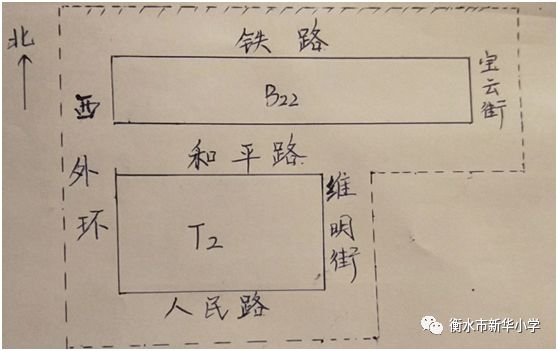 北
铁路
宝云街
B22
西外环
和平路
维明街
T2
人民路
衡水市新华小学